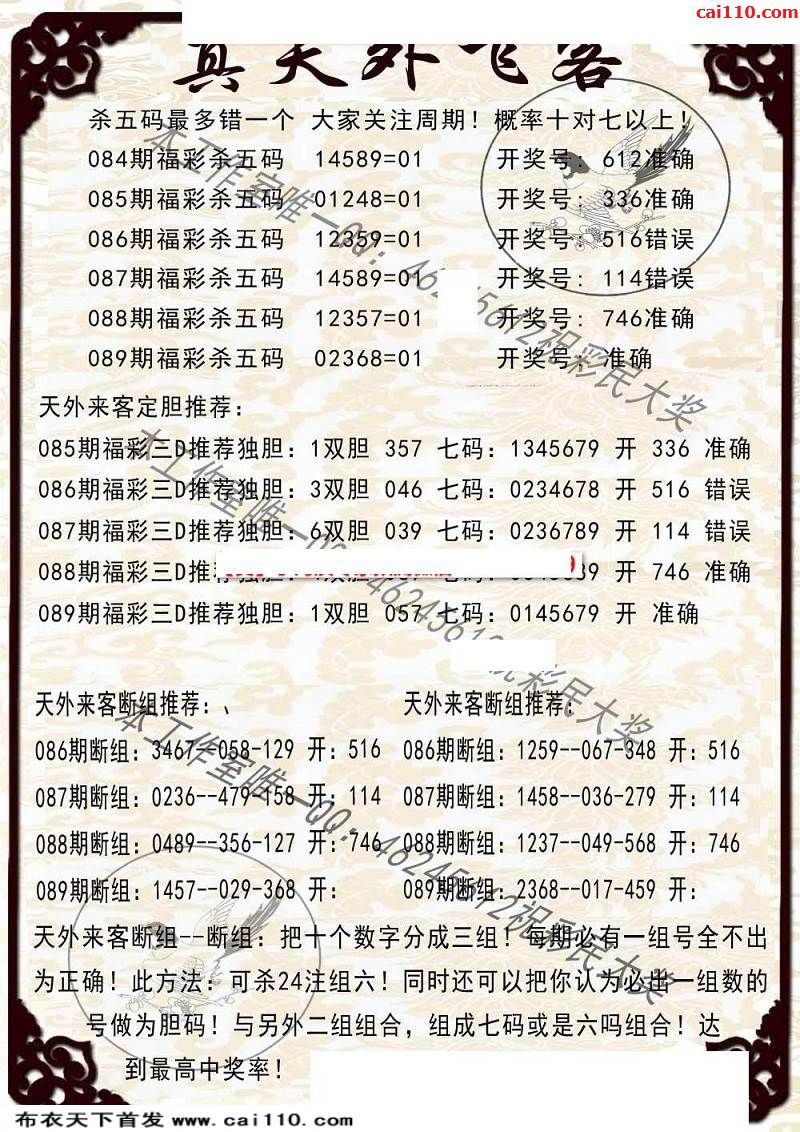 cai110.com
真天外飞客
杀五码最多错一个 大家关注周期！概率十对七以上！
084期福彩杀五码 14589=01 开奖号：612准确
085期福彩杀五码 01248=01 开奖号：336准确
086期福彩杀五码 12359=01 开奖号：516错误
087期福彩杀五码 14589=01 开奖号：114错误
088期福彩杀五码 12357=01 开奖号：746准确
089期福彩杀五码 02368=01 开奖号：准确
天外来客定胆推荐：
085期福彩三D推荐独胆：1双胆 357 七码：1345679 开 336 准确
086期福彩三D推荐独胆：3双胆 046 七码：0234678 开 516 错误
087期福彩三D推荐独胆：6双胆 039 七码：0236789 开 114 错误
088期福彩三D推荐独胆： 开 746 准确
089期福彩三D推荐独胆：1双胆 057 七码：0145679 开 准确
天外来客断组推荐：、 天外来客断组推荐：
086期断组：3467--058-129 开：516 086期断组：1259--067-348 开：516
087期断组：0236--479-158 开：114 087期断组：1458--036-279 开：114
088期断组：0489--356-127 开：746 088期断组：1237--049-568 开：746
089期断组：1457--029-368 开： 089期断组：2368--017-459 开：
天外来客断组--断组：把十个数字分成三组！每期必有一组号全不出
为正确！此方法：可杀24注组六！同时还可以把你认为必出一组数的
号做为胆码！与另外二组组合，组成七码或是六吗组合！达
到最高中奖率！
本工作室唯一QQ：46245612祝彩民大奖
本工作室唯一QQ：46245612祝彩民大奖
本工作室唯一QQ：46245612祝彩民大奖
布衣天下首发 www.cai110.com